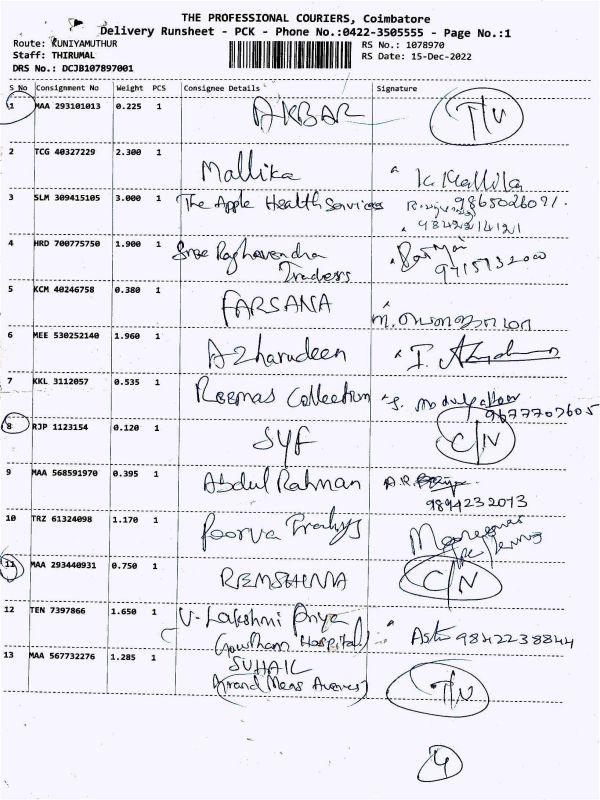 THE PROFESSIONAL COURIERS, Coimbatore
Delivery Runsheet - PCK - Phone No.:0422-3505555 - Page No.:1
Route: KUNIYAMUTHUR RS No.: 1078970
Staff: THIRUMAL RS Date: 15-Dec-2022
DRS No.: DCJB107897001
S No Consignment No Weight PCS Consignee Details Signature
1 MAA 293101013 0.225 1 AKBAR
2 TCG 40327229 2.300 1 Mallika K. Mallika
3 SLM 309415105 3.000 1 The Apple Health Services
4 HRD 700775750 1.900 1 Sree Raghavendra
Traders
5 KCM 40246758 0.380 1 FARSANA
6 MEE 530252140 1.960 1 Azharudeen
7 KKL 3112057 0.535 1 Reemas Collection
9677707605
8 RJP 1123154 0.120 1 SYF C/N
9 MAA 568591970 0.395 1 Abdul Rahman A.R.
9894232073
10 TRZ 61324098 1.170 1 Poorva
11 MAA 293440931 0.750 1 REMSHINA C/N
12 TEN 7397866 1.650 1 V. Lakshmi Priya
(Gowtham Hospital) 9842238844
13 MAA 567732276 1.285 1 SUHAIL
4